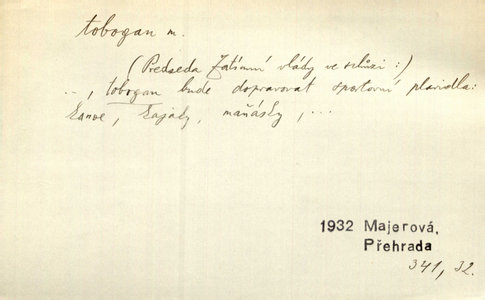 tobogan m.
(Předseda Zatímní vlády ve schůzi:)
..., tobogan bude dopravovat sportovní plavidla:
kanoe, kajaky, maňásky, ...
1932 Majerová,
Přehrada
341, 32.